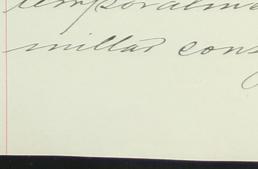 temporalm
millas cons